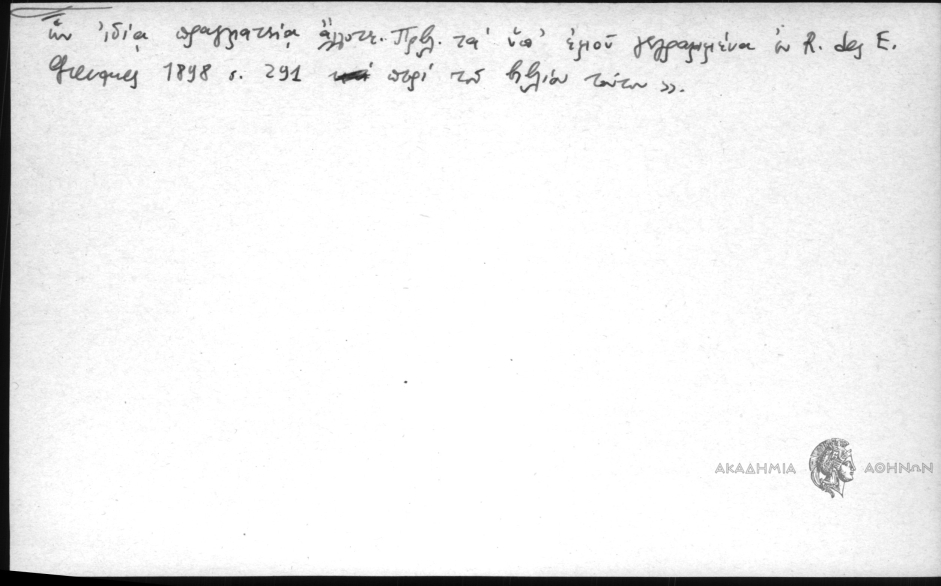 ἐν ἰδίᾳ πραγματείᾳ ἄλλοτε. Πρβλ. τὰ ὑπ' ἐμοῦ γεγραμμένα ἐν R. des E.
Grecques 1898 σ. 291 περὶ τοῦ βιβλίου τούτου ».
ΑΚΑΔΗΜΙΑ ΑΘΗΝΩΝ